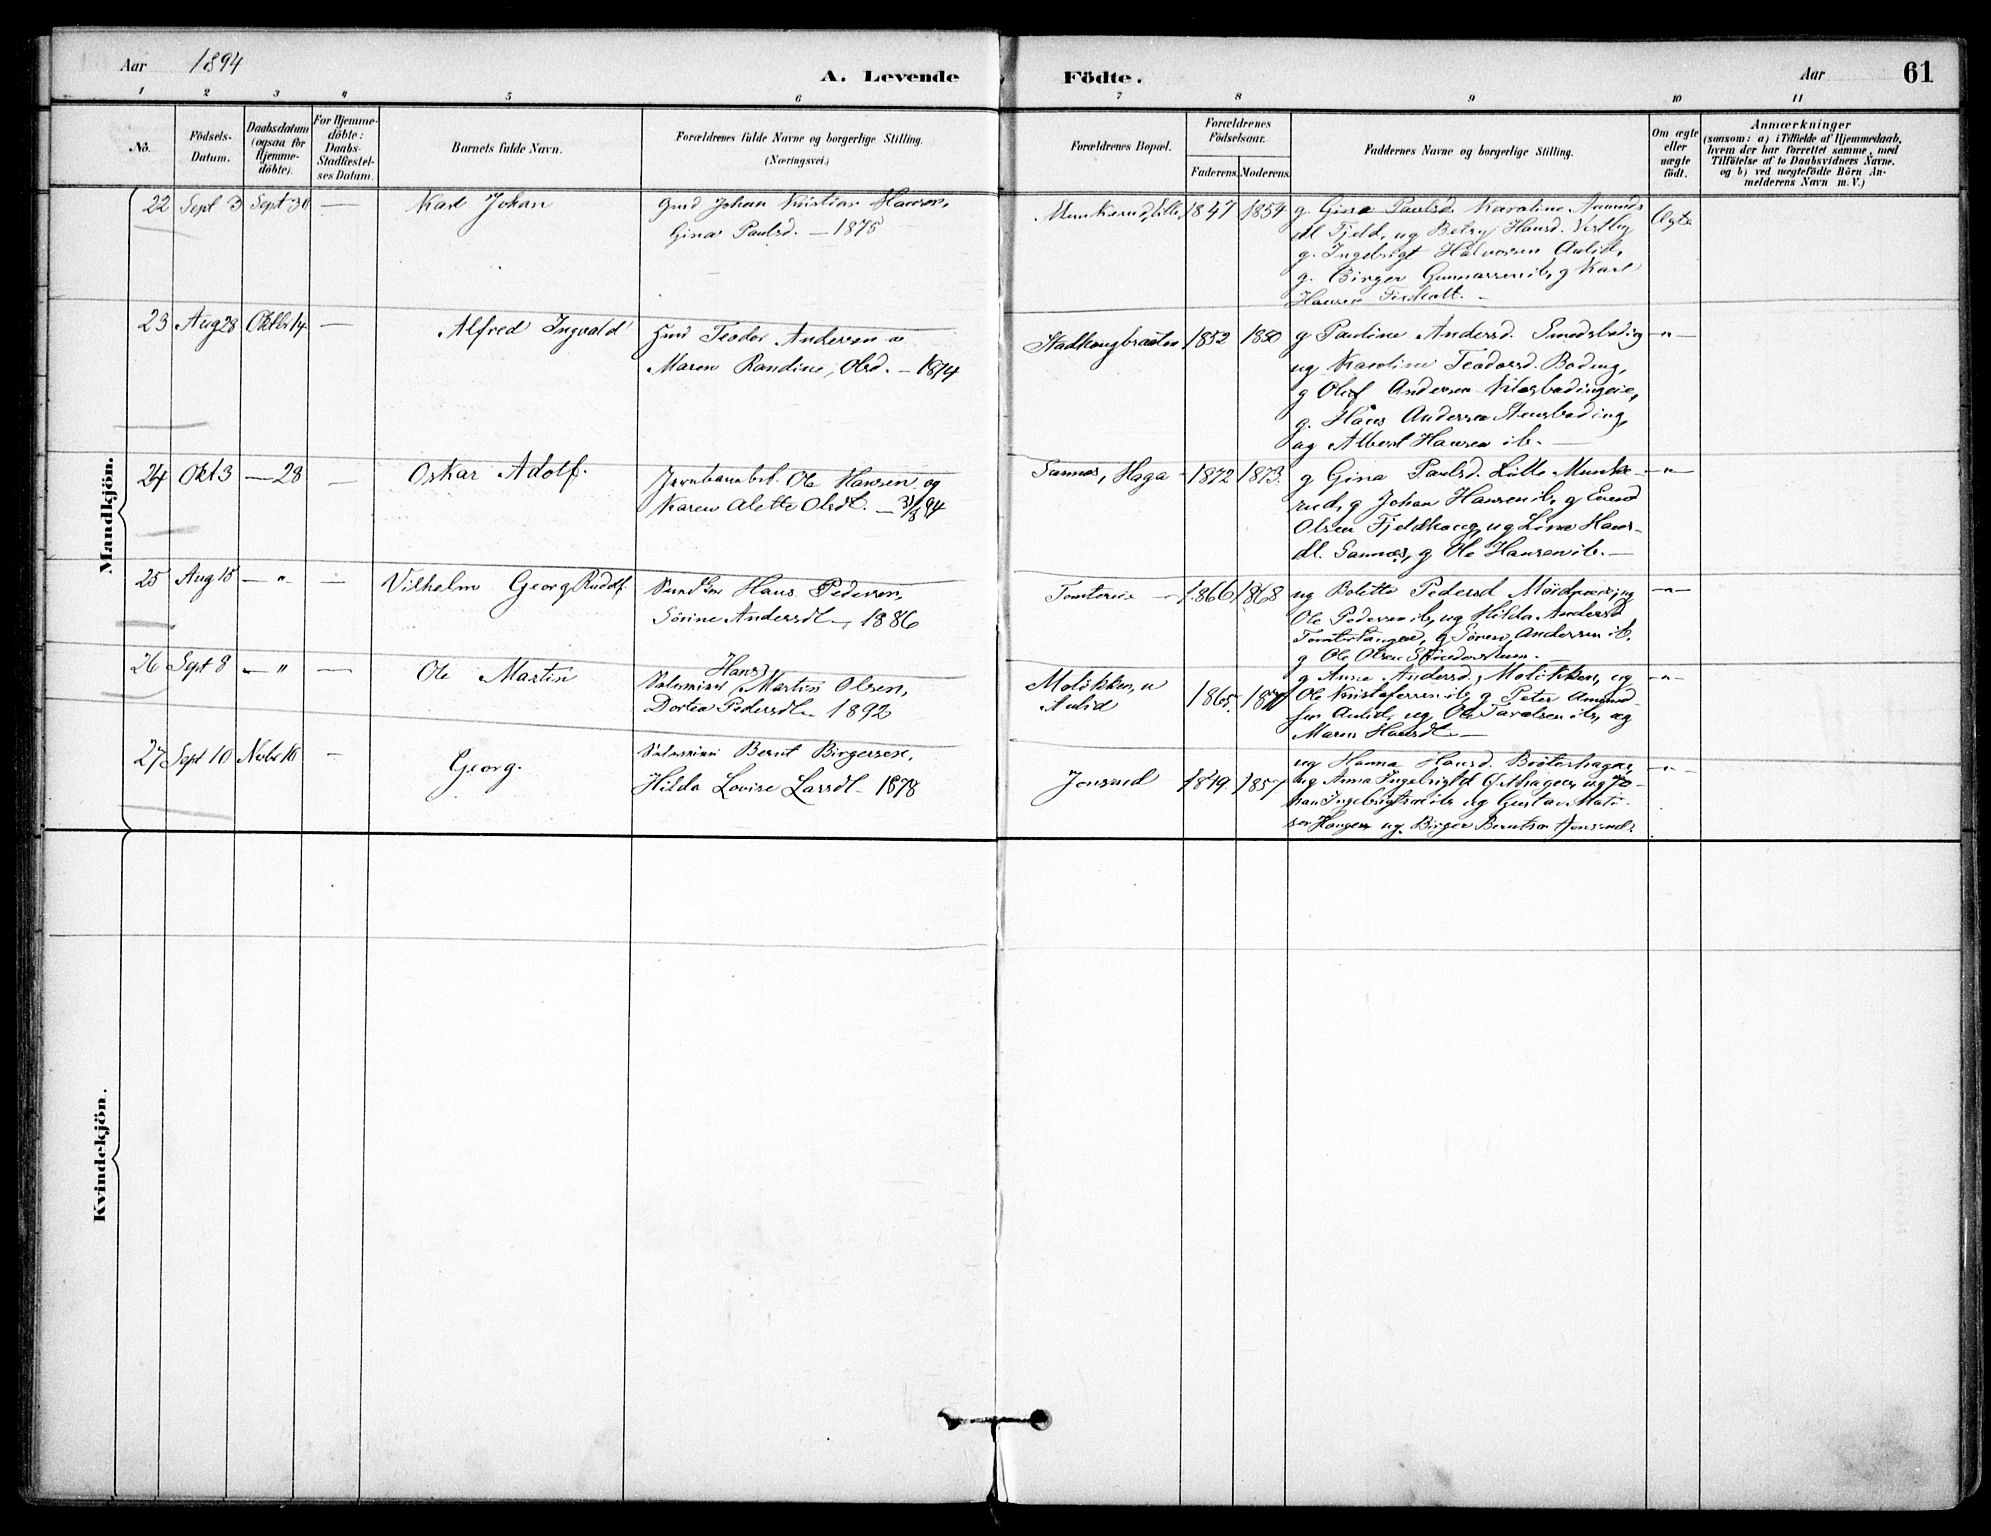 Aar 1894
A. Levende Födte.
Aar 61
1 2 3 4 5 6 7 8 9 10 11
No.
Födsels-Datum.
Daabsdatum (ogsaa for Hjemmedöbte).
For Hjemmedöbte: Daabs-Stadfæstelses Datum.
Barnets fulde Navn.
Forældrenes fulde Navne og borgerlige Stilling. (Næringsvei.)
Forældrenes Bopæl.
Forældrenes Födselsaar.
Faderens. Moderens.
Faddernes Navne og borgerlige Stilling.
Om ægte eller uægte födt.
Anmærkninger
(saasom: a) i Tilfælde af Hjemmedaab,
hvem der har forrettet samme, med
Tilföielse af to Daabsvidners Navne.
og b) ved uægtefödte Börn An-
melderens Navn m. V.)
Mandkjön.
22 Sept 3 Sept 30 — Karl Johan
Gmd Johan Kristian Hansen,
Gina Paulsd. — 1875
Munkerud, lille 1847 1854
g. Gina Paulsd. Karoline Amunds
dl Fjeld, ug Betsy Hansd. Vestby
g. Ingebrigt Halvorsen Aulid,
g. Birger Gunnarsen ib, g Karl
Hansen
Ægte
23 Aug 28 Oktbr 14 — Alfred Ingvald
Gmd Teodor Andersen o
Maren Randine, Olsd. — 1874
1852 1850
g Pauline Andersd. Smedsbøding
ug Karoline Teodorsd. Bøding,
g Oluf Andersen
g. Hans Andersen
ag Albert Hansen ib. —
— " —
24 Okt 3 — 28 — Oskar Adolf.
Jernbanebet. Ole Hansen og
Karen Alette Olsdt. — 31/3 94
Sannes, Haga 1872 1873.
g Gina Paulsd. Lille Munke-
rud, g Johan Hansen ib, g Evend
Olsen Fjeldhaug, ug Lina Hans-
dl. Sannes, g Ole Hansen ib. —
— " —
25 Aug 15 — " — — Vilhelm Georg Rudolf
Hans Pedersen,
Sörine Andersdt — 1886
Tomtereie 1866 1868
ug Bolette Pedersd
Ole Pedersen ib, ug Hilda Andersd
Tomtertangen, g Sören Andersen ib.
g Ole Olsen
— " —
26 Sept 8 — " — Ole Martin
Hans
Martin Olsen,
Dortea Pedersdt — 1892
Molikken, u
Aulid
1865.
g Anne Andersd, Molikken, ug
Ole Kristofersen ib, g Peter Amund-
sen Aulid, ug, Ole Tavelsen ib, ag
Maren Hansdt —
— " —
27 Sept 10 Novbr 18 — Georg.
Bernt Birgersen,
Hilda Lovise Larsdt — 1878
Jonsrud 1849. 1857
ug Hanna Hansd. Bröterhagen,
ug Anna Ingebrigtd ug Jo-
han Ingebrigtsen ib, ug Gustav Mati-
sen Haugen ug. Birger Berntsen Jonsrud.
— " —
Kvindekjön.